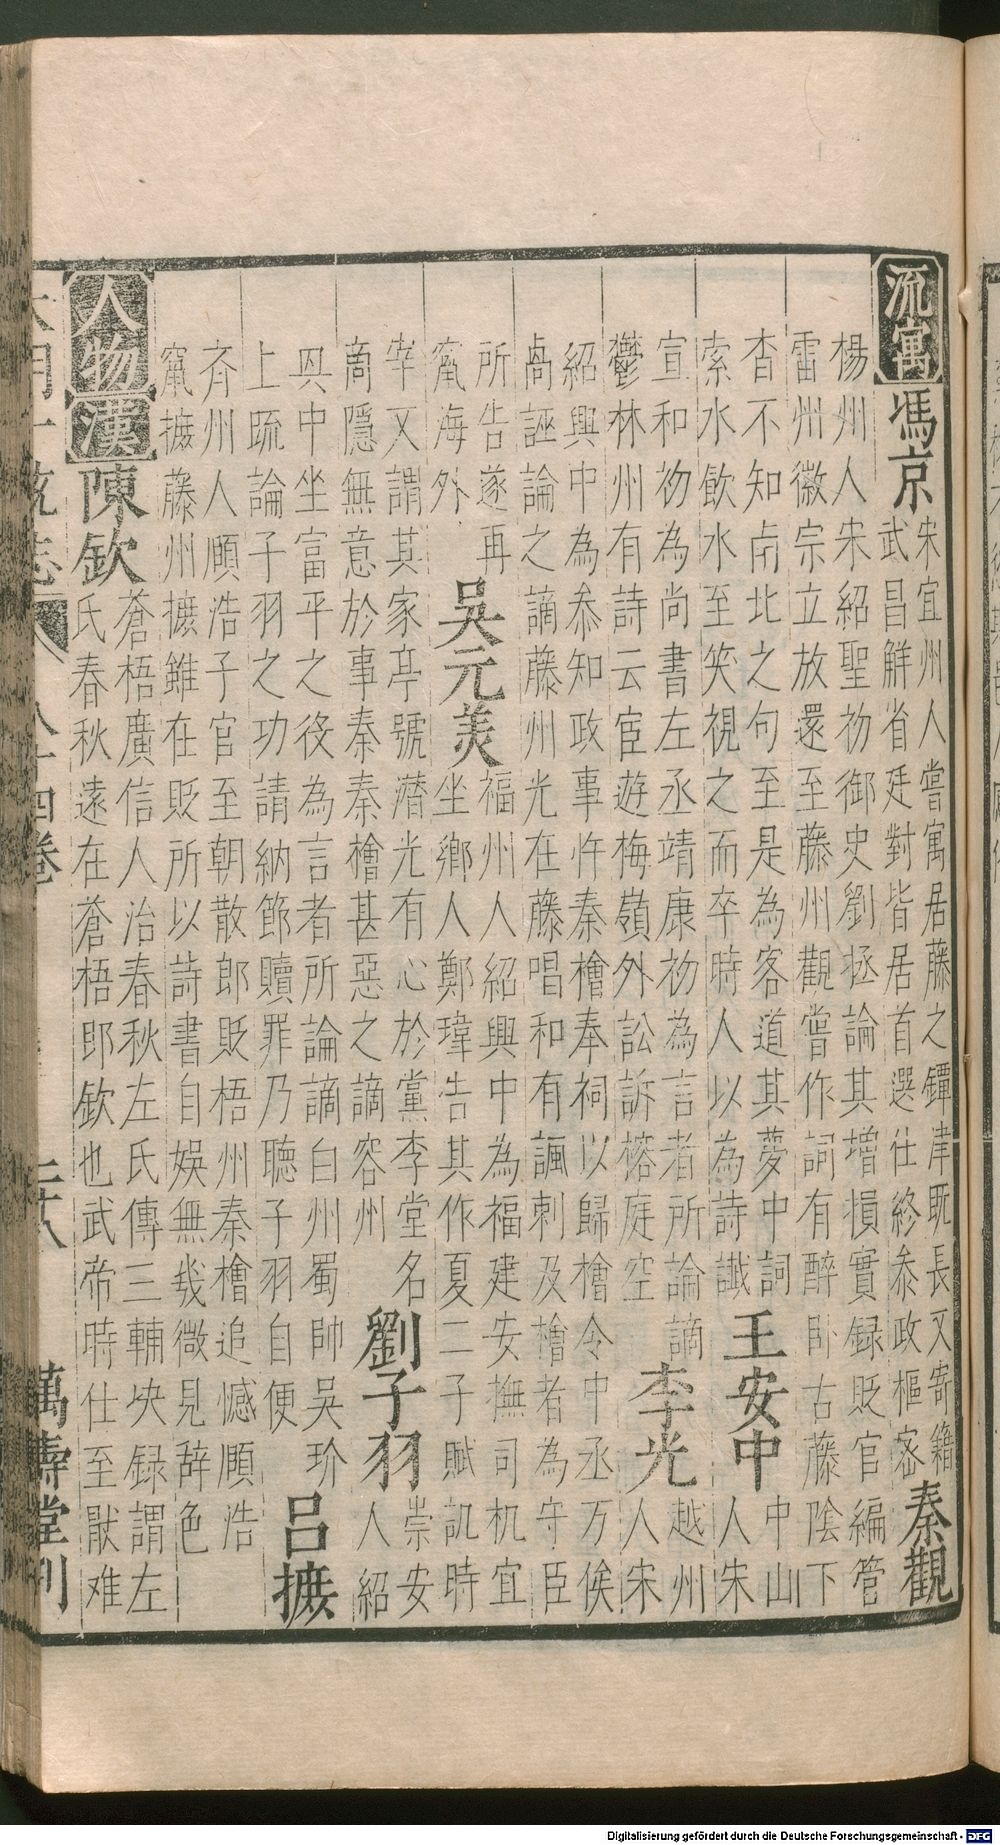 流寓馮京宋宜州人嘗寓居藤之鐔津旣長又寄籍
武昌觧省廷對皆居首選仕終叅政樞宻秦觀
楊州人宋紹聖初御史劉拯論其增損實録貶官編管
雷州徽宗立放還至藤州觀嘗作詞有醉卧古藤陰下
杳不知南北之句至是為客道其夢中詞
索水飲水至笑視之而卒時人以為詩䜟王安中中山
人宋
宣和初為尚書左丞靖康初為言者所論謫
鬱林州有詩云宦遊梅嶺外訟訴榕庭空李光越州
人宋
紹興中為叅知政事忤秦檜奉祠以歸檜令中丞万俟
卨誣論之謫藤州光在藤唱和有諷刺及檜者為守臣
所告遂再
竄海外吳元美福州人紹興中為福建安撫司机宜
坐鄉人鄭瑋告其作夏二子賦訊時
宰又謂其家亭號潛光有心於黨李堂名
啇隱無意於事秦秦檜甚惡之謫容州劉子羽崇安
人紹
興中坐富平之役為言者所論謫白州蜀帥吳玠
上疏論子羽之功請納節贖罪乃聽子羽自便呂摭
齊州人頤浩子官至朝散郎貶梧州秦檜追憾頤浩
竄摭藤州摭雖在貶所以詩書自娛無㡬微見辞色
人物漢陳欽蒼梧廣信人治春秋左氏傳三輔决録謂左
氏春秋遠在蒼梧即欽也武帝時仕至猒难
大明一統志 八十四卷 二十八 萬壽堂刊
Digitalisierung gefördert durch die Deutsche Forschungsgemeinschaft - DFG